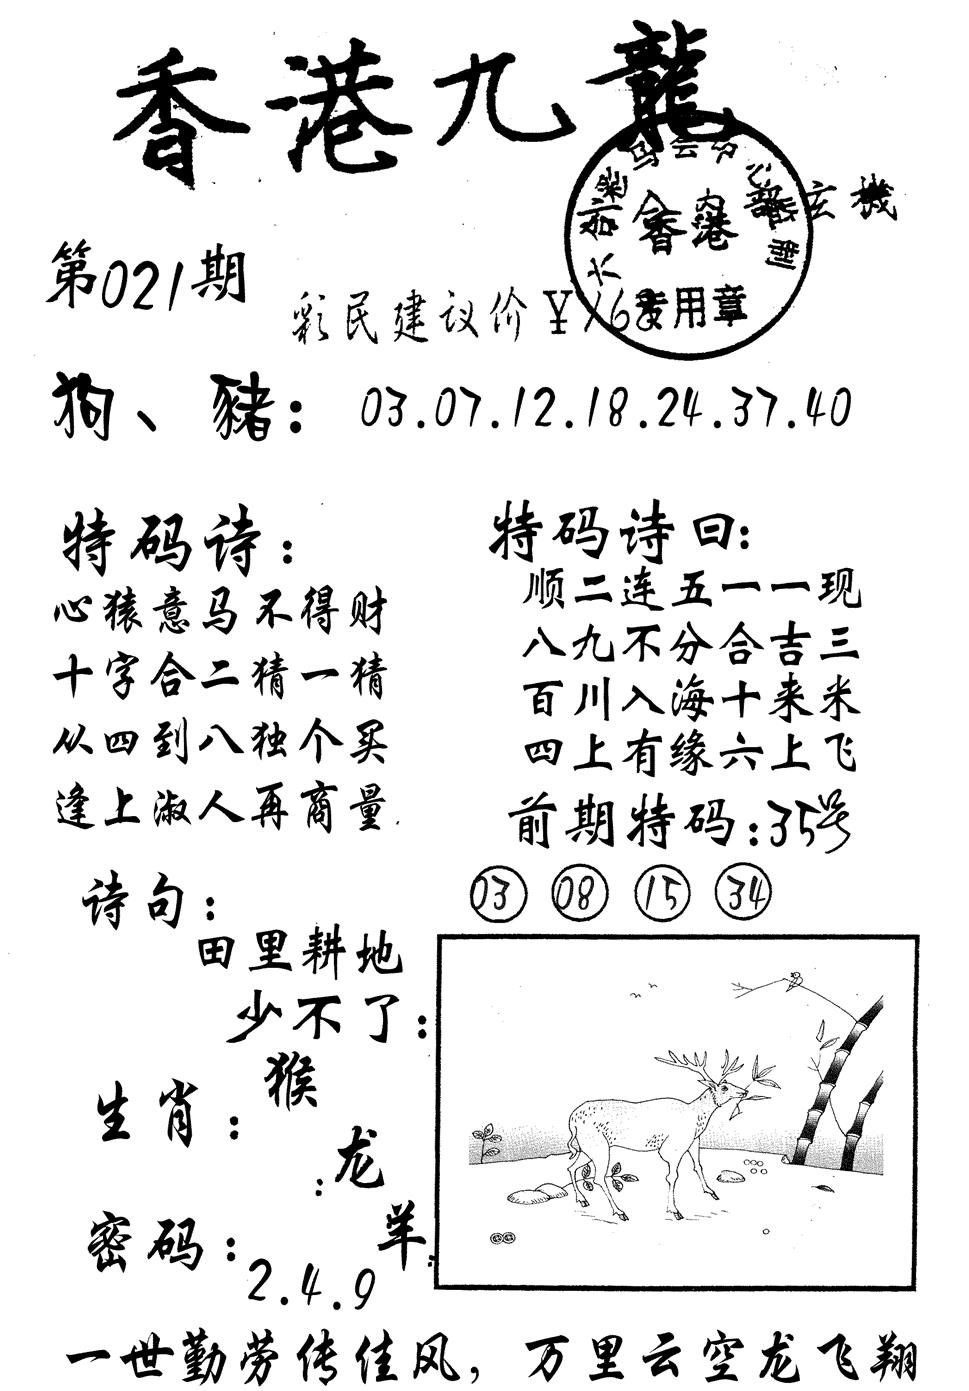 香港九龍
玄機
香港
专用章
第021期
彩民建议价¥168
狗、豬：03.07.12.18.24.37.40
特码诗：
心猿意马不得财
十字合二猜一猜
从四到八独个买
逢上淑人再商量.
特码诗曰：
顺二连五一一现
八九不分合吉三
百川入海十来米
四上有缘六上飞
前期特码：35号
03 08 15 34
诗句：
田里耕地
少不了：
生肖：猴
：龙
羊.
密码：
2.4.9
一世勤劳传佳风，万里云空龙飞翔